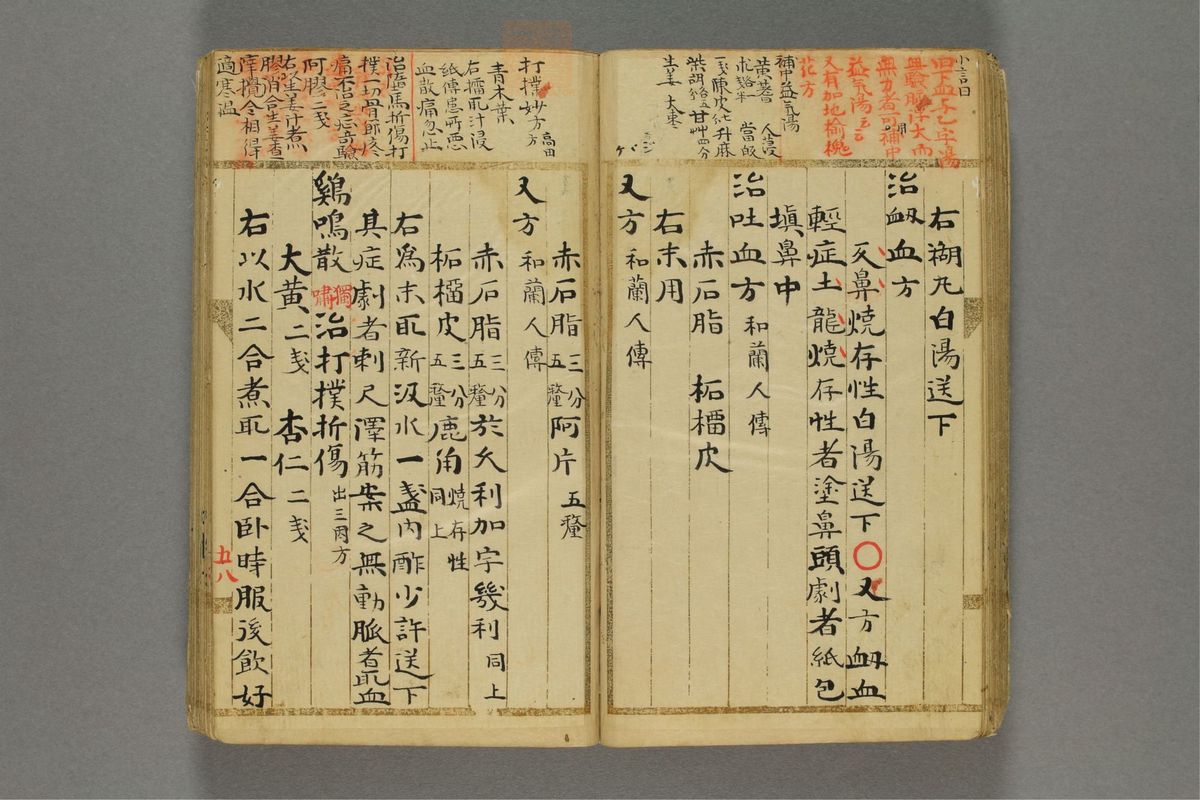 右糊丸白湯送下
治衂血方
灰鼻焼存性白湯送下〇又方衂血
輕症土龍焼存性者塗鼻頭劇者紙包
塡鼻中
治吐血方 和蘭人傳
赤石脂 柘榴皮
右末用
又方 和蘭人傳
赤石脂 三分五釐 阿片 五釐
又方 和蘭人傳
赤石脂 三分五釐 於久利加字幾利 同上
柘榴皮 三分五釐 鹿角 焼存性同上
右為末取新汲水一盞内酢少許送下
其症劇者刺尺澤筋案之無動脈者取血
鷄鳴散 獨嘯 治打撲折傷 出三因方
大黄 二戔 杏仁 二戔
右以水二合煮取一合卧時服後飲好
五八
無力者可補中
益氣湯
又有加地榆槐
花方
補中益氣湯
黄蓍 人參
當皈
陳皮 升麻
柴胡 甘艸
生姜 大棗
打撲妙方 高田
青木葉
右擂取汁浸
紙傳患所惡
血散痛忽止
治墜馬折傷打
撲一切骨節疼
痛不
阿膠 二戔
右 生姜汁煮
膠消合生姜
滓攪令相得
適寒温